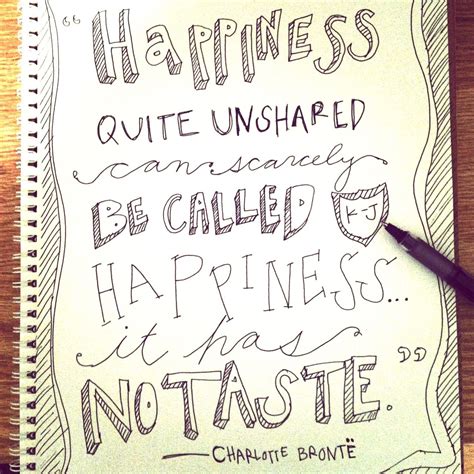 “HAPPINESS
QUITE UNSHARED
can scarcely
BE CALLED KJ
HAPPINESS...
it has
NO TASTE.”
—CHARLOTTE BRONTË